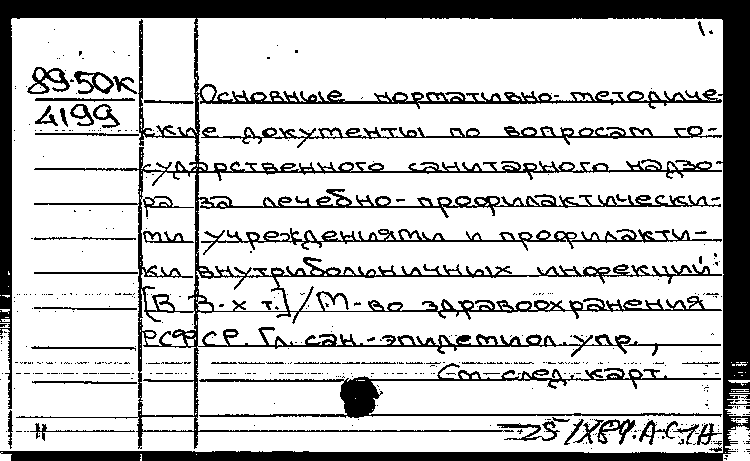 1.
89-50К
4199
Основные нормативно-методиче-
ские документы по вопросам го-
сударственного санитарного надзо-
ра за лечебно-профилактически-
ми учреждениями и профилакти-
ки внутрибольничных инфекций:
[В 3-х т.]/М-во здравоохранения
РСФСР. Гл. сан.-эпидемиол. упр.,
См. след. карт.
25/IX89.